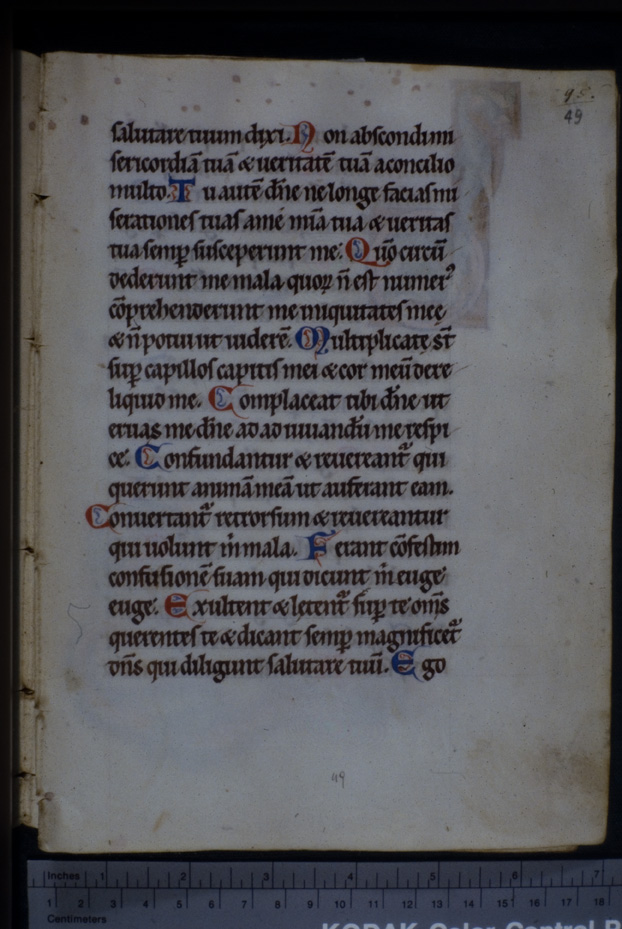 95.
49
salutare tuum dixi. Non abscondi mi
sericordiā tuā & ueritatē tuā a concilio
multo. Tu autē dn̄e ne longe facias mi
serationes tuas a me mīa tua & ueritas
tua semp̱ susceperunt me. Qūo circū
dederunt me mala quoꝝ n̄ est numerꝰ
cōprehenderunt me iniquitates meę
& n̄ potui ut uiderē. Multiplicatę st̄
sup̱ capillos capitis mei & cor meū dere
liquid me. Complaceat tibi dn̄e ut
eruas me dn̄e ad adiuuandū me respi
ce. Confundantur & reuereant᷑ qui
querunt animā meā ut auferant eam.
Conuertant᷑ retrorsum & reuereantur
qui uolunt m̄ mala. Ferant cōfestim
confusionē suam qui dicunt m̄ euge
euge. Exultent & lętent᷑ sup̱ te om̄s
querentes te & dicant semp̱ magnificet᷑
dn̄s qui diligunt salutare tuū. Ego
49
Inches 1 2 3 4 5 6 7
1 2 3 4 5 6 7 8 9 10 11 12 13 14 15 16 17 18
Centimeters
KODAK Color Control P